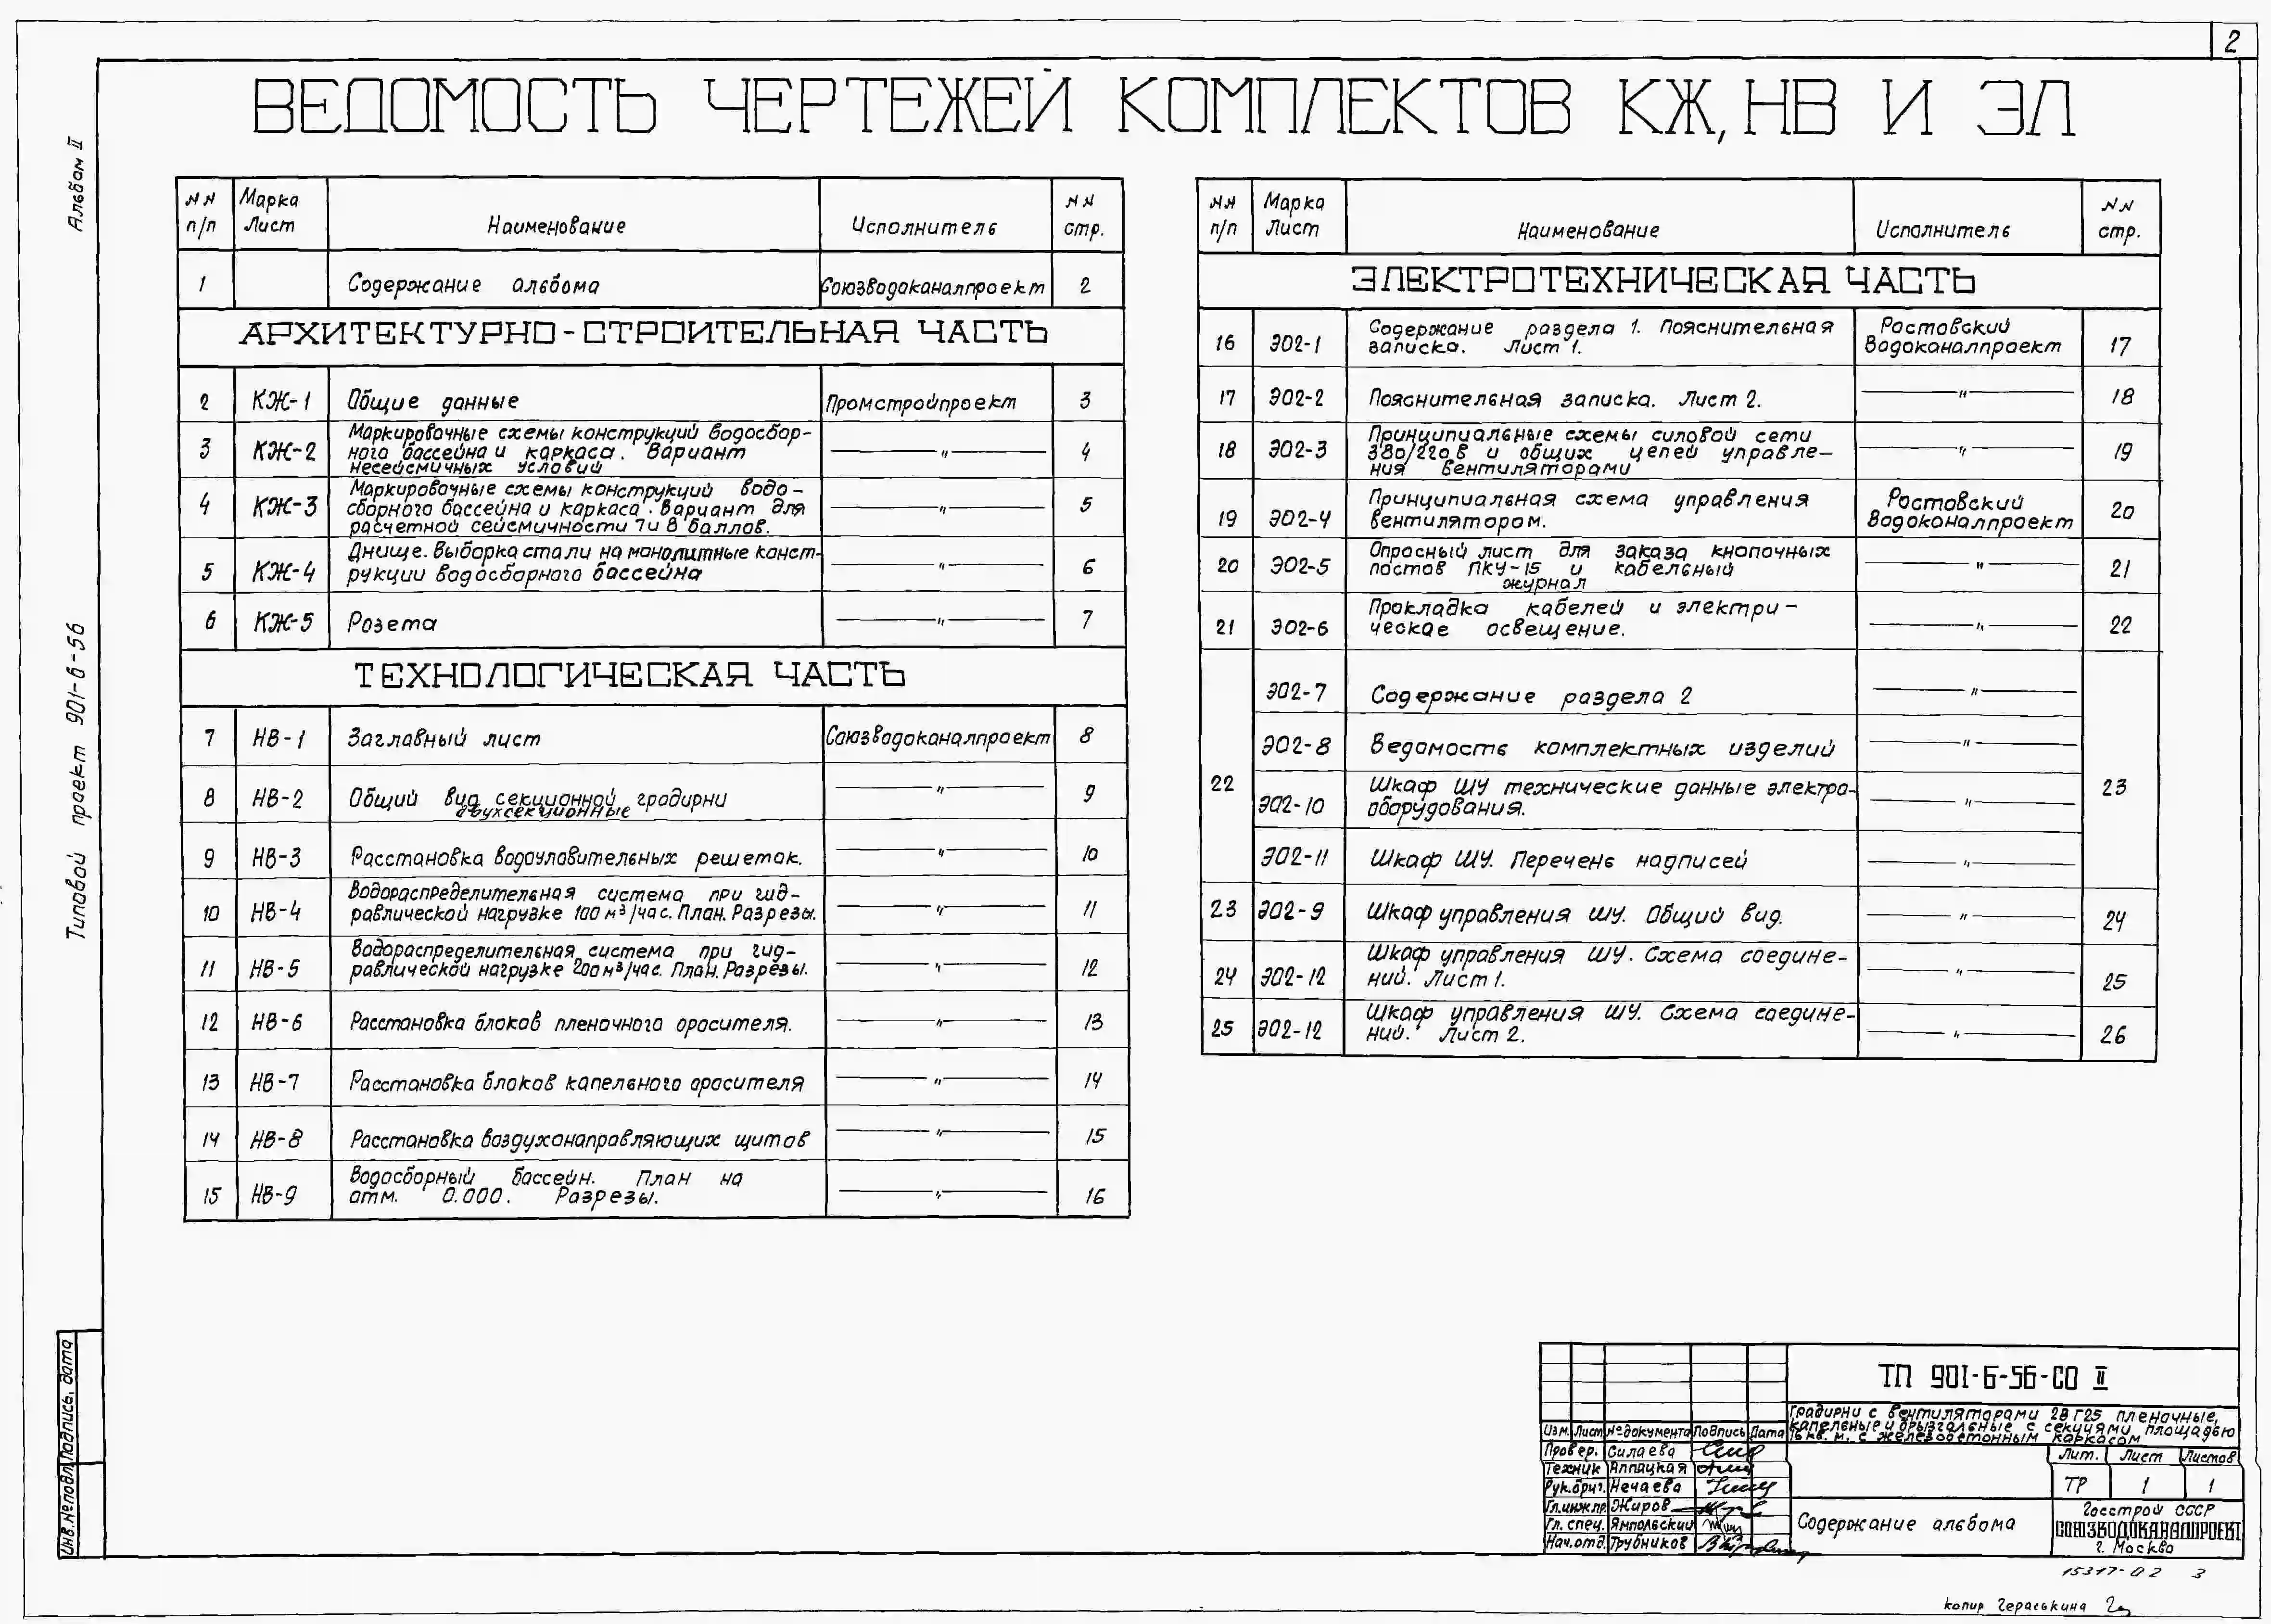 2
ВЕДОМОСТЬ ЧЕРТЕЖЕЙ КОМПЛЕКТОВ КЖ, НВ И ЭЛ
Альбом II
Типовой проект 901-6-56
Инв.№подл. Подпись, дата
NN п/п Марка Лист Наименование Исполнитель NN стр.
1 Содержание альбома Союзводоканалпроект 2
АРХИТЕКТУРНО-СТРОИТЕЛЬНАЯ ЧАСТЬ
2 КЖ-1 Общие данные Промстройпроект 3
3 КЖ-2 Маркировочные схемы конструкций водосбор-
ного бассейна и каркаса. Вариант
несейсмичных условий —"— 4
4 КЖ-3 Маркировочные схемы конструкций водо-
сборного бассейна и каркаса. Вариант для
расчетной сейсмичности 7 и 8 баллов. —"— 5
5 КЖ-4 Днище. Выборка стали на монолитные конст-
рукции водосборного бассейна —"— 6
6 КЖ-5 Розета —"— 7
ТЕХНОЛОГИЧЕСКАЯ ЧАСТЬ
7 НВ-1 Заглавный лист Союзводоканалпроект 8
8 НВ-2 Общий вид секционной градирни
двухсекционные —"— 9
9 НВ-3 Расстановка водоуловительных решеток. —"— 10
10 НВ-4 Водораспределительная система при гид-
равлической нагрузке 100 м³/час. План. Разрезы. —"— 11
11 НВ-5 Водораспределительная система при гид-
равлической нагрузке 200 м³/час. План. Разрезы. —"— 12
12 НВ-6 Расстановка блоков пленочного оросителя. —"— 13
13 НВ-7 Расстановка блоков капельного оросителя —"— 14
14 НВ-8 Расстановка воздухонаправляющих щитов —"— 15
15 НВ-9 Водосборный бассейн. План на
отм. 0.000. Разрезы. —"— 16
NN п/п Марка Лист Наименование Исполнитель NN стр.
ЭЛЕКТРОТЕХНИЧЕСКАЯ ЧАСТЬ
16 ЭО2-1 Содержание раздела 1. Пояснительная
записка. Лист 1. Ростовский Водоканалпроект 17
17 ЭО2-2 Пояснительная записка. Лист 2. —"— 18
18 ЭО2-3 Принципиальные схемы силовой сети
380/220 в и общих цепей управле-
ния вентиляторами —"— 19
19 ЭО2-4 Принципиальная схема управления
вентилятором. Ростовский Водоканалпроект 20
20 ЭО2-5 Опросный лист для заказа кнопочных
постов ПКУ-15 и кабельный
журнал —"— 21
21 ЭО2-6 Прокладка кабелей и электри-
ческое освещение. —"— 22
22 ЭО2-7 Содержание раздела 2 —"— 23
ЭО2-8 Ведомость комплектных изделий —"—
ЭО2-10 Шкаф ШУ технические данные электро-
оборудования. —"—
ЭО2-11 Шкаф ШУ. Перечень надписей —"—
23 ЭО2-9 Шкаф управления ШУ. Общий вид. —"— 24
24 ЭО2-12 Шкаф управления ШУ. Схема соедине-
ний. Лист 1. —"— 25
25 ЭО2-12 Шкаф управления ШУ. Схема соедине-
ний. Лист 2. —"— 26
ТП 901-6-56-СО II
Градирни с вентиляторами 2ВГ25 пленочные,
капельные и брызгальные с секциями площадью
16 кв. м. с железобетонным каркасом
Изм. Лист №документа Подпись Дата
Провер. Силаева
Техник Аппацкая
Рук.бриг. Нечаева
Гл.инж.пр. Жиров
Гл. спец. Ямпольский
Нач.отд. Трубников
Лит. Лист Листов
ТР 1 1
Содержание альбома
Госстрой СССР
СОЮЗВОДОКАНАЛПРОЕКТ
г. Москва
15317-02 3
копир Гераськина